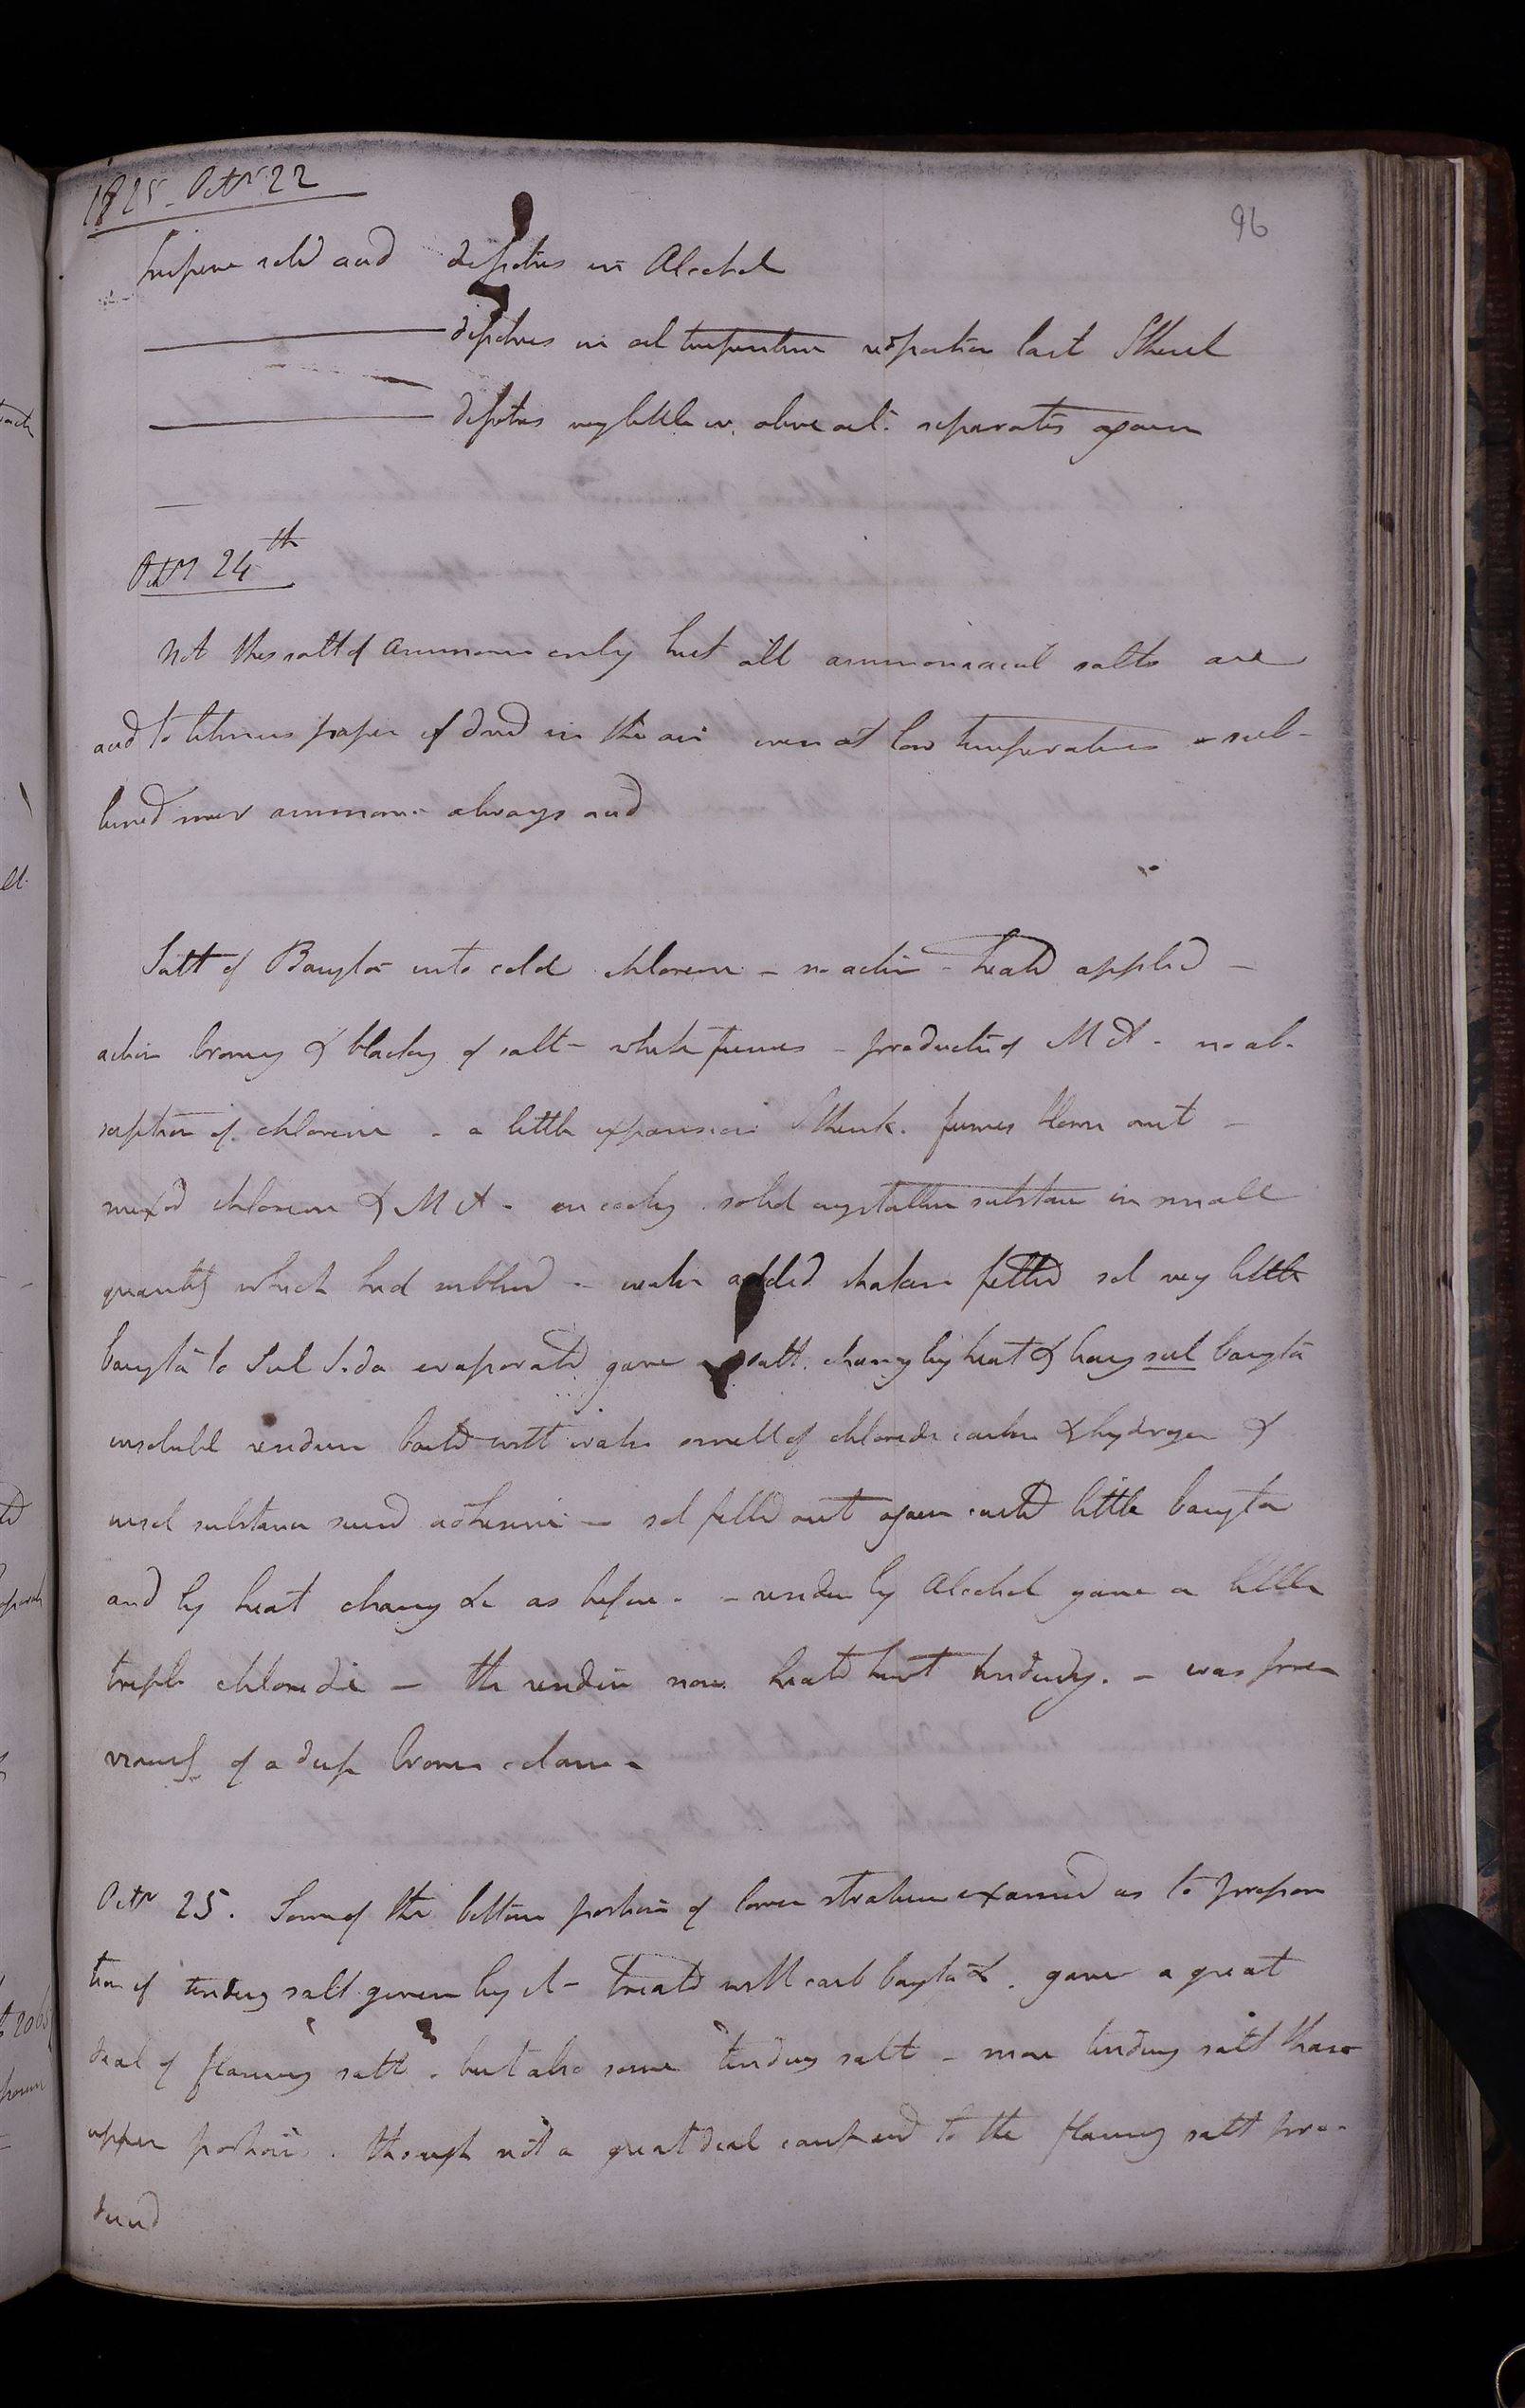 1825. Octr 22
96
Impure solid acid dissolves in Alcohol
dissolves in oil turpentine red portion last I think
dissolves very little in olive oil. separates again
Octr 24th
Not this salt of ammonia only but all ammoniacal salts are
acid to litmus paper if dried in the air even at low temperatures
mur ammonia always acid
Salt of Baryta into cold chlorine - no action - heated applied -
action browng & blackg of salt - white fumes - production of M A - no ab-
sorption of chlorine - a little expansion I think. fumes blown out -
mixed chlorine & M A - on coolg solid crystalline substance in small
quantity which had sublimed - water added filtered sol very little
baryta to Sul Soda evaporated gave salt. charrg by heat & leavg sul baryta
insoluble residue boild with water smell of chloride carbon & hydrogen &
insol substance seemd adhesive - sol filtd out again contd little baryta
and by heat charrg &c as before. - residue by Alcohol gave a little
triple chloride - the residue now heatd burnt tinderg. - was previously
of a deep brown colour.
Octr 25. Some of the bottom portion of lower stratum examind as to propor
tion of tinderg salt given by it - treatd with carb baryta &. gave a great
deal of flaming salt. but also some tinderg salt - more tinderg salt than
upper portion. though not a great deal compard to the flaming salt pro-
duced